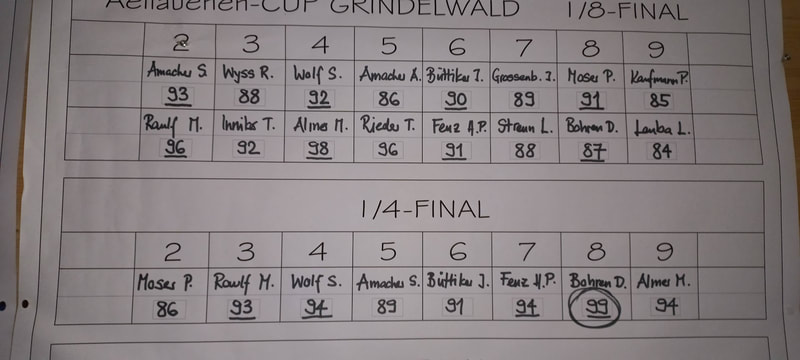 Aellauenen-CUP GRINDELWALD 1/8-FINAL
2 3 4 5 6 7 8 9
Amacher S. Wyss R. Wolf S. Amacher A. Büttiker J. Grossenb. J. Moser P. Kaufmann P.
93 88 92 86 90 89 91 85
Raulf M. Inniks T. Almer M. Rieder T. Fenz H.P. Straun L. Bohren D. Lauba L.
96 92 98 96 91 88 87 84
1/4-FINAL
2 3 4 5 6 7 8 9
Moser P. Raulf M. Wolf S. Amacher S. Büttiker J. Fenz H.P. Bohren D. Almer M.
86 93 94 89 91 94 99 94